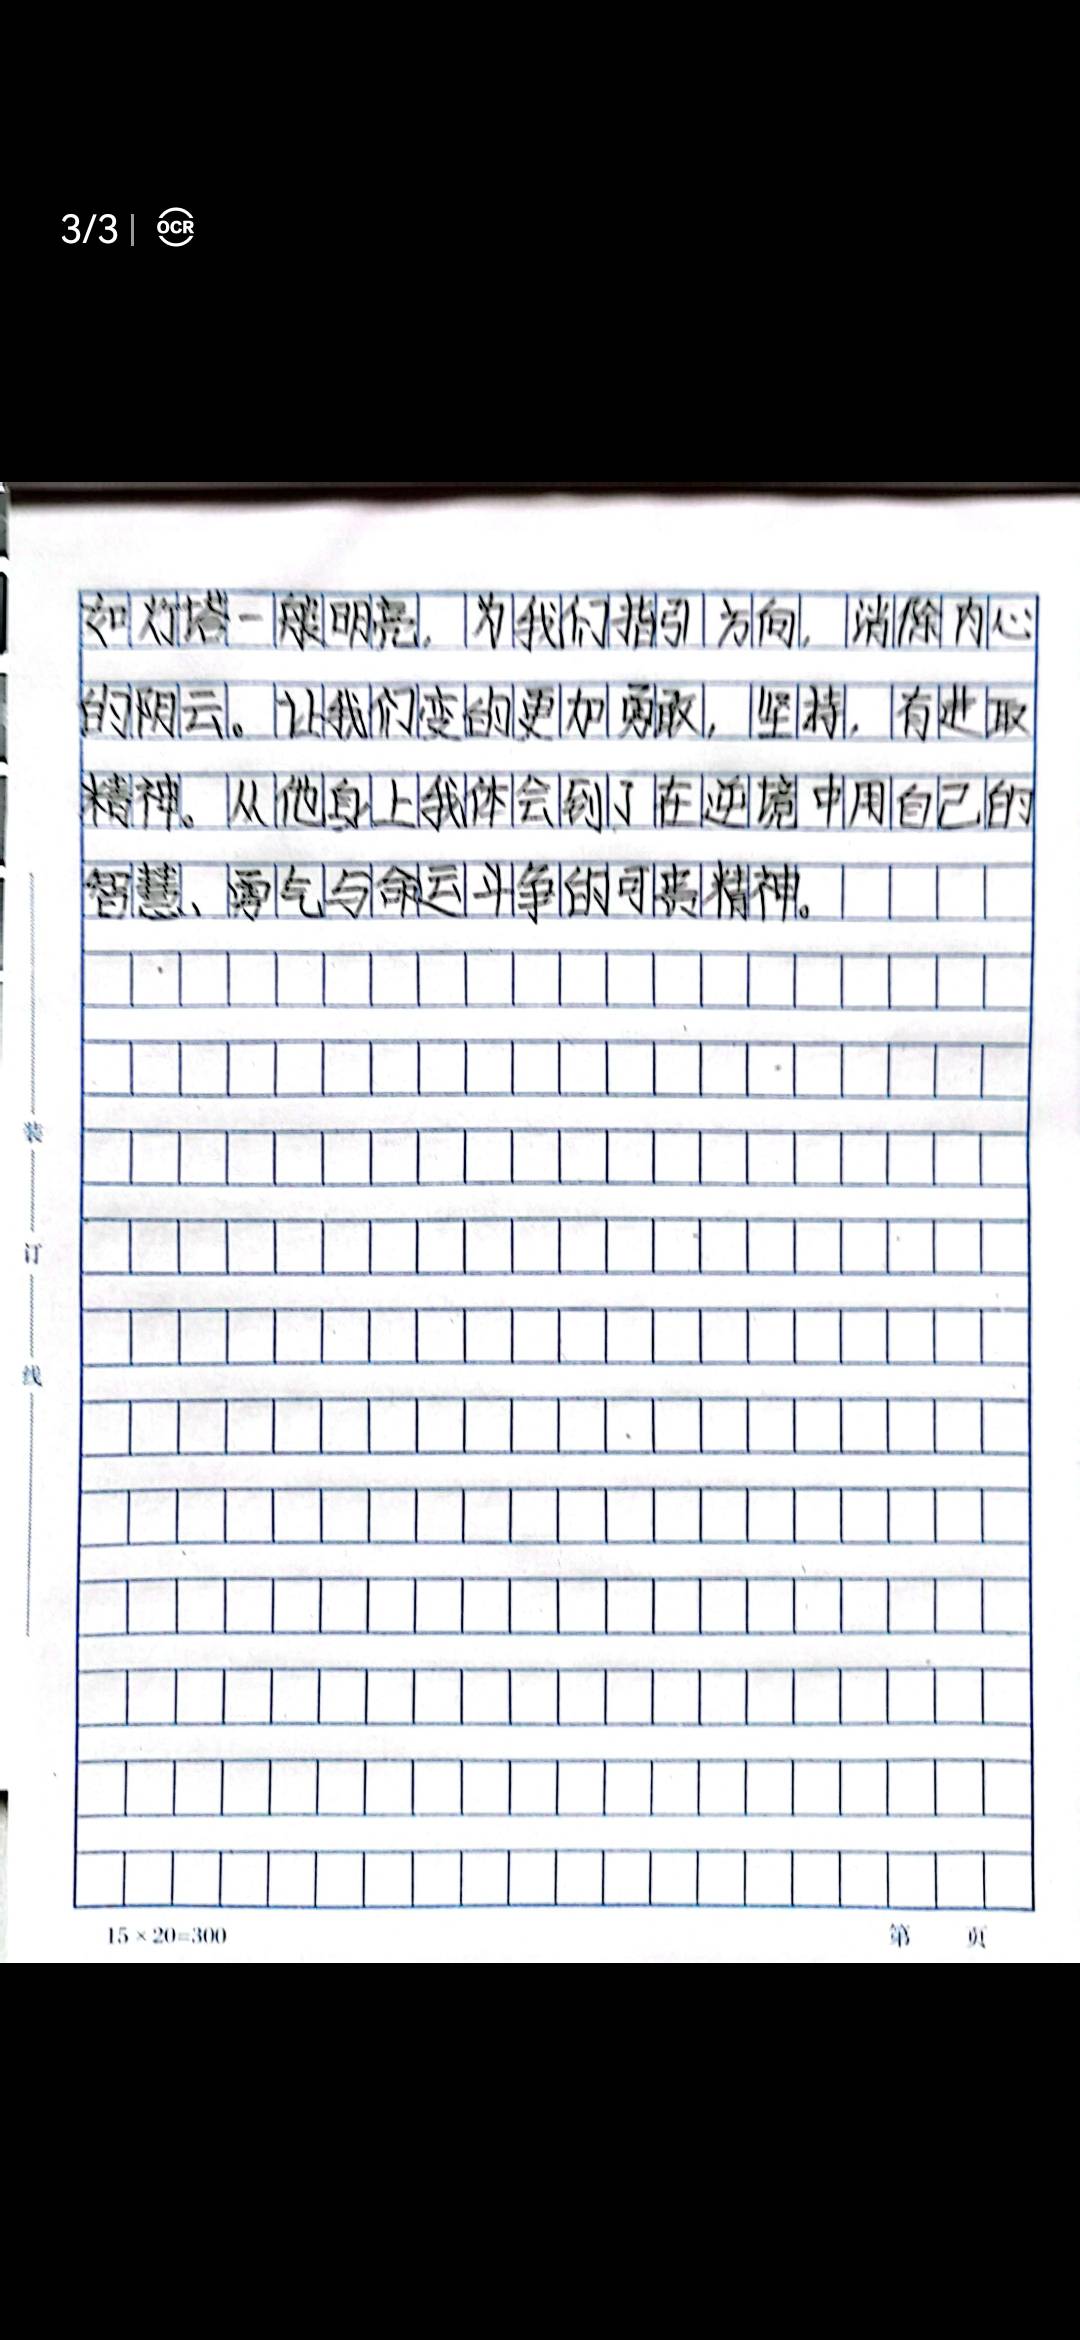 3/3 | OCR
如灯塔一般明亮，为我们指引方向，消除内心
的阴云。让我们变的更加勇敢，坚持，有进取
精神。从他身上我体会到了在逆境中用自己的
智慧、勇气与命运斗争的可贵精神。
装
订
线
15×20=300
第 页